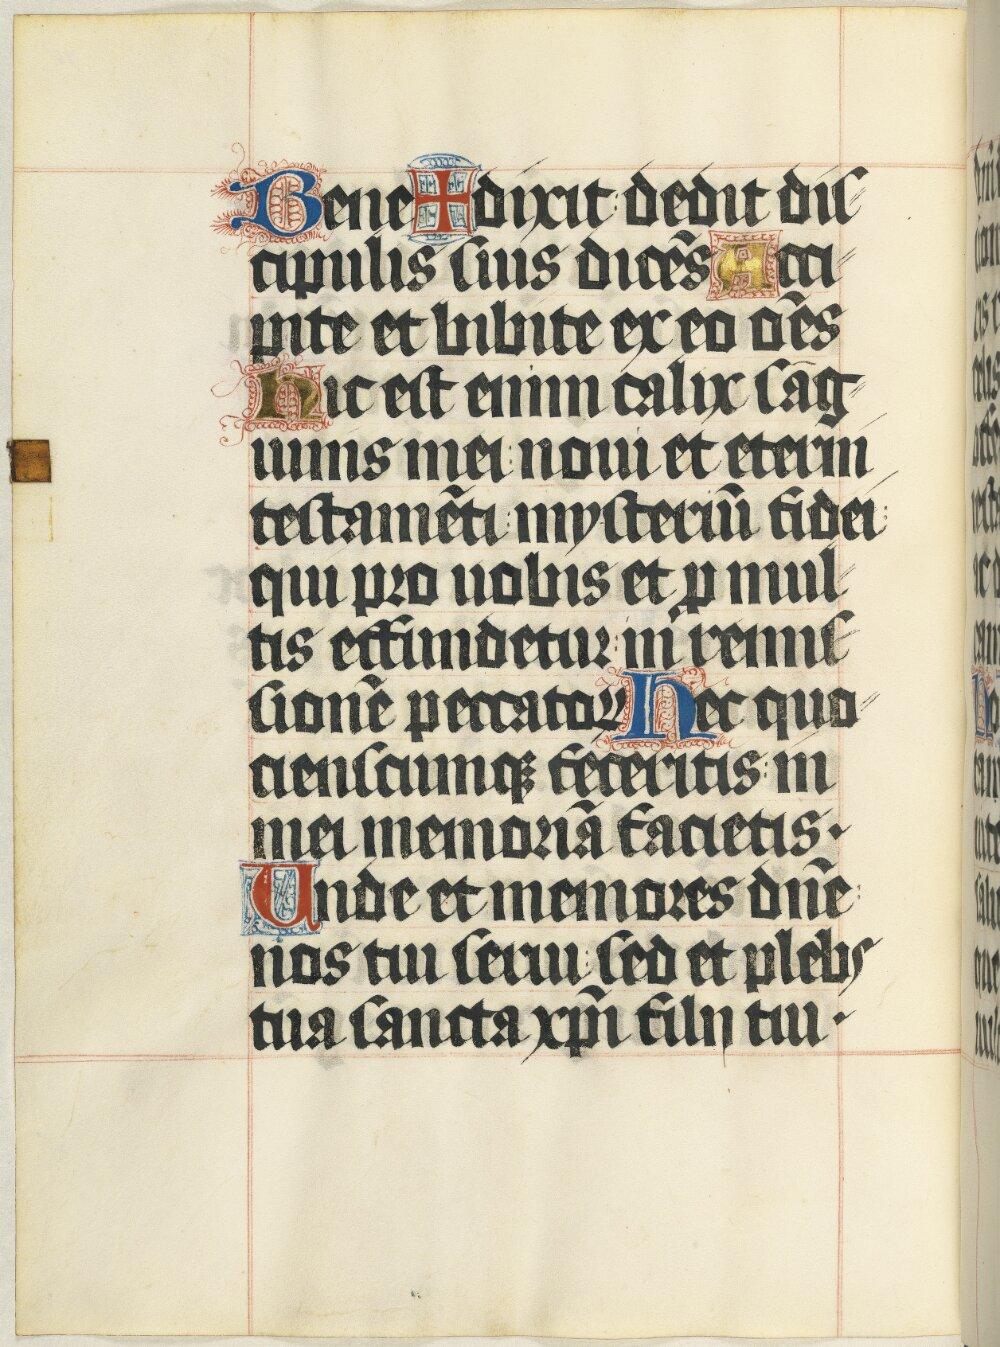 Bene✠dixit: dedit diſ
cipulis ſuis dicēs Acci
pite et bibite ex eo oēs
Hic est enim calix ſāg
uinis mei: noui et eterni
teſtamēti: myſteriū fidei:
qui pro uobis et ꝑ mul
tis effundetur: in remiſ
ſionē peccatoꝝ Hec quo
cienſcumqꝫ feceritis: in
mei memoriā facietis·
Unde et memores dn̄e:
nos tui ſerui: ſed et plebs
tua ſancta xp̄i filij tui·